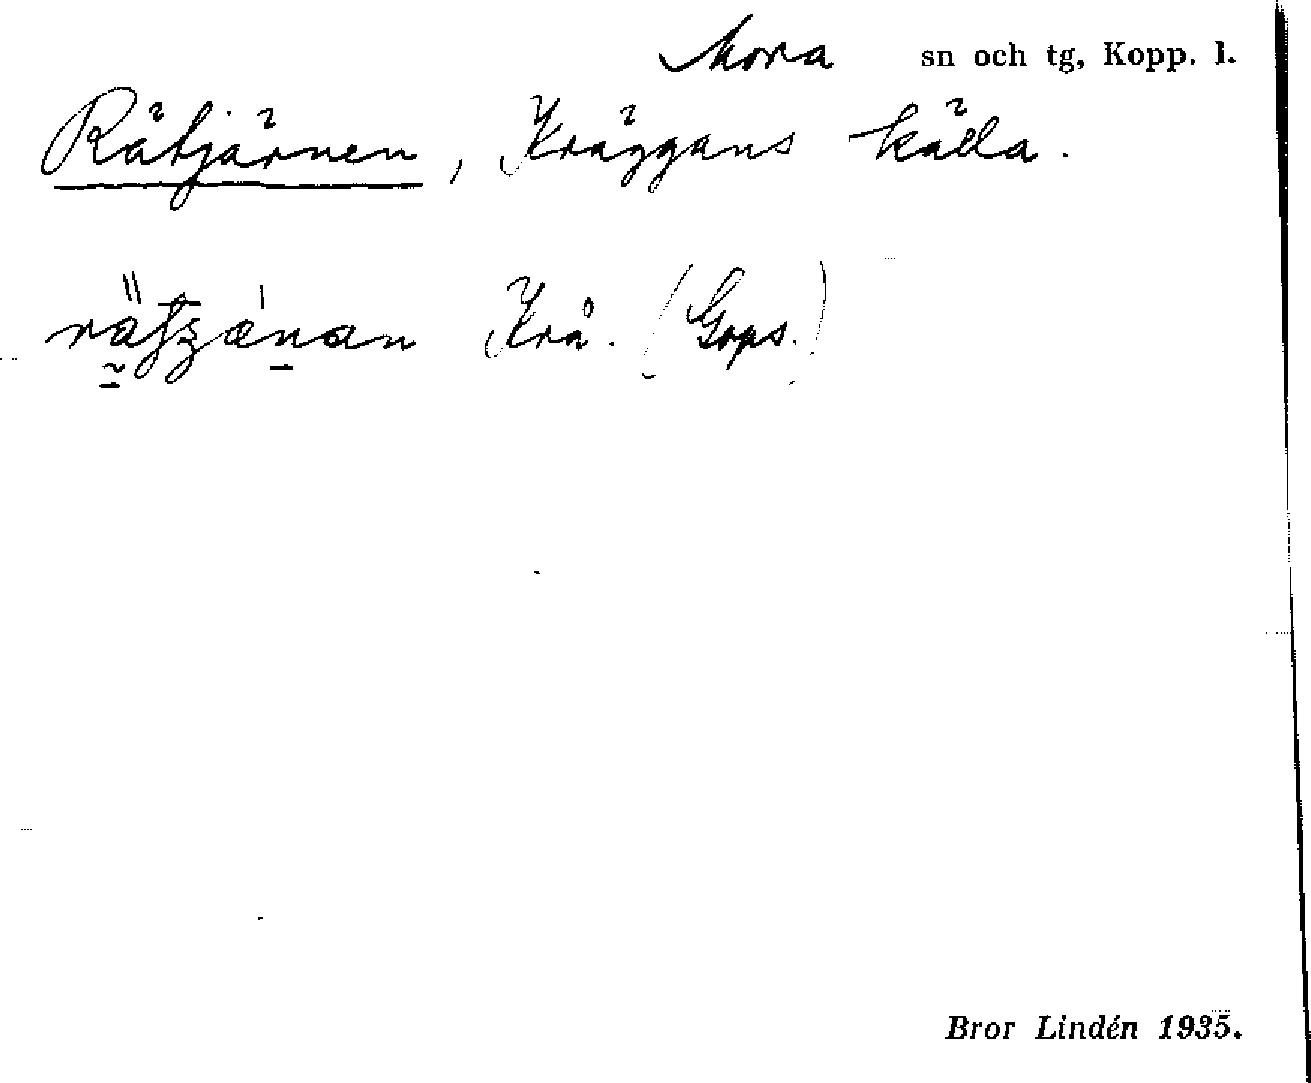 Mora sn och tg, Kopp. l.
Rätjärnen, Kräggans källa.
Krå. (Gops.)
Bror Lindén 1935.